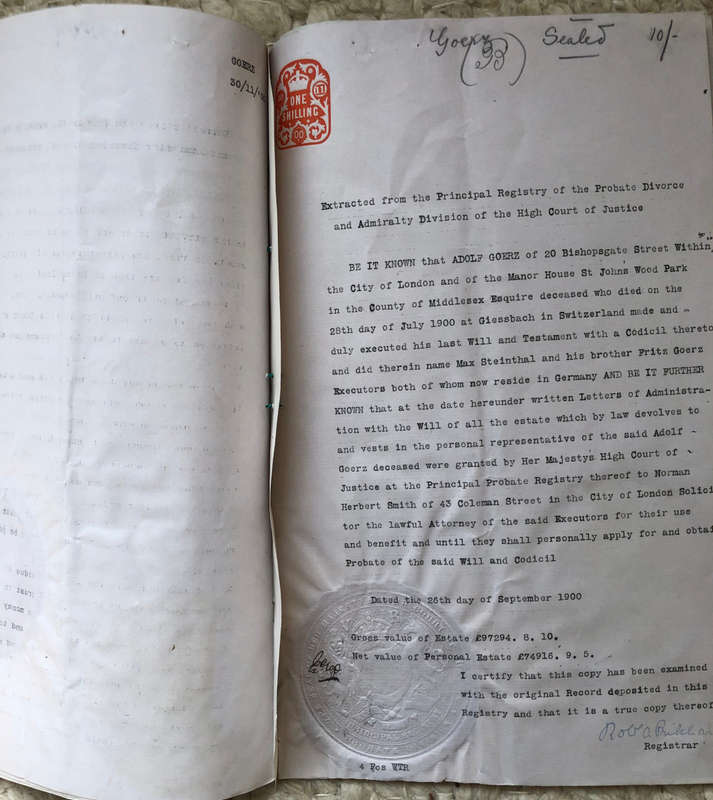 GOERZ
30/11/
Goerz Sealed 10/-
ONE
SHILLING
00
Extracted from the Principal Registry of the Probate Divorce
and Admiralty Division of the High Court of Justice
BE IT KNOWN that ADOLF GOERZ of 20 Bishopsgate Street Within
the City of London and of the Manor House St Johns Wood Park
in the County of Middlesex Esquire deceased who died on the
28th day of July 1900 at Giessbach in Switzerland made and -
duly executed his last Will and Testament with a Codicil thereto
and did therein name Max Steinthal and his brother Fritz Goerz
Executors both of whom now reside in Germany AND BE IT FURTHER
KNOWN that at the date hereunder written Letters of Administra-
tion with the Will of all the estate which by law devolves to
and vests in the personal representative of the said Adolf -
Goerz deceased were granted by Her Majestys High Court of -
Justice at the Principal Probate Registry thereof to Norman
Herbert Smith of 43 Coleman Street in the City of London Solici
tor the lawful Attorney of the said Executors for their use
and benefit and until they shall personally apply for and obtai
Probate of the said Will and Codicil
Dated the 26th day of September 1900
Gross value of Estate £97294. 8. 10.
Net value of Personal Estate £74916. 9. 5.
I certify that this copy has been examined
with the original Record deposited in this
Registry and that it is a true copy thereof
Registrar
4 Fos WTR